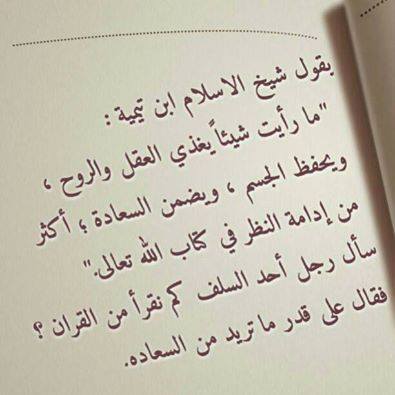 يقول شيخ الاسلام ابن تيمية :
"ما رأيت شيئاً يغذي العقل والروح ،
ويحفظ الجسم ، ويضمن السعادة ؛ أكثر
من إدامة النظر في كتاب الله تعالى."
سأل رجل أحد السلف كم نقرأ من القران ؟
فقال على قدر ما تريد من السعاده.